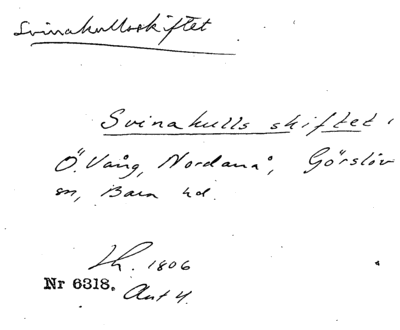 Svinakullsskiftet
Svinakulls skiftet i
Ö. Vång, Nordanå, Görslöv
sn, Bara hd.
Lh. 1806
Nr 6318.
Akt 4.